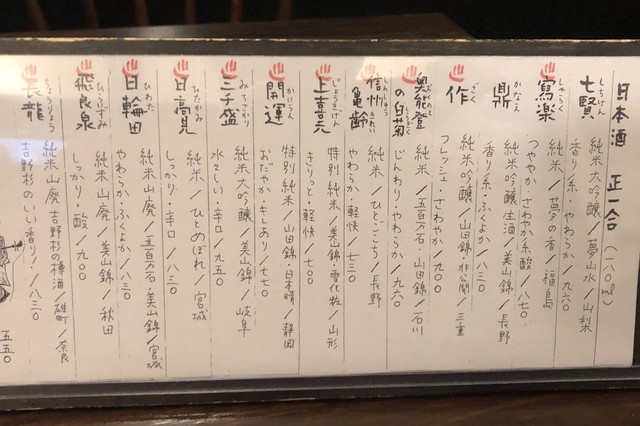 日本酒 正一合（一八〇ml）
しちけん
七賢
純米大吟醸／夢山水／山梨
香り系・やわらか／九六〇
しゃらく
寫楽
純米／夢の香／福島
つややか・さわやか系酸／八七〇
かなえ
鼎
純米吟醸生酒／美山錦／長野
香り系・ふくよか／八三〇
ざく
作
純米吟醸／山田錦・非公開／三重
フレッシュ・さわやか／九〇〇
おくのとの しらぎく
奥能登の白菊
純米／五百万石・山田錦／石川
じんわり・やわらか／九六〇
しんしゅう きれい
信州亀齢
純米／ひとごこち／長野
やわらか・軽快／七三〇
じょうきげん
上喜元
特別純米／美山錦・雪化粧／山形
きりっと・軽快／七七〇
かいうん
開運
特別純米／山田錦・日本晴／静岡
おだやか・キレあり／七七〇
みちざかり
三千盛
純米大吟醸／美山錦／岐阜
水々しい・辛口／九五〇
ひたかみ
日高見
純米／ひとめぼれ／宮城
しっかり・辛口／八三〇
ひわた
日輪田
純米山廃／五百万石・美山錦／宮城
やわらか・ふくよか／八三〇
ひらいずみ
飛良泉
純米山廃／美山錦／秋田
しっかり・酸／九〇〇
ちょうりょう
長龍
純米山廃 吉野杉の樽酒／雄町／奈良
吉野杉のいい香り！／八三〇
五五〇